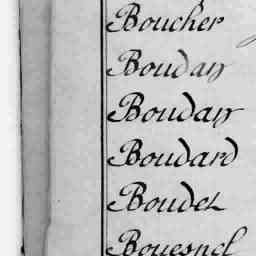 Boucher
Bouday
Bouday
Boudard
Boudet
Bouesnel